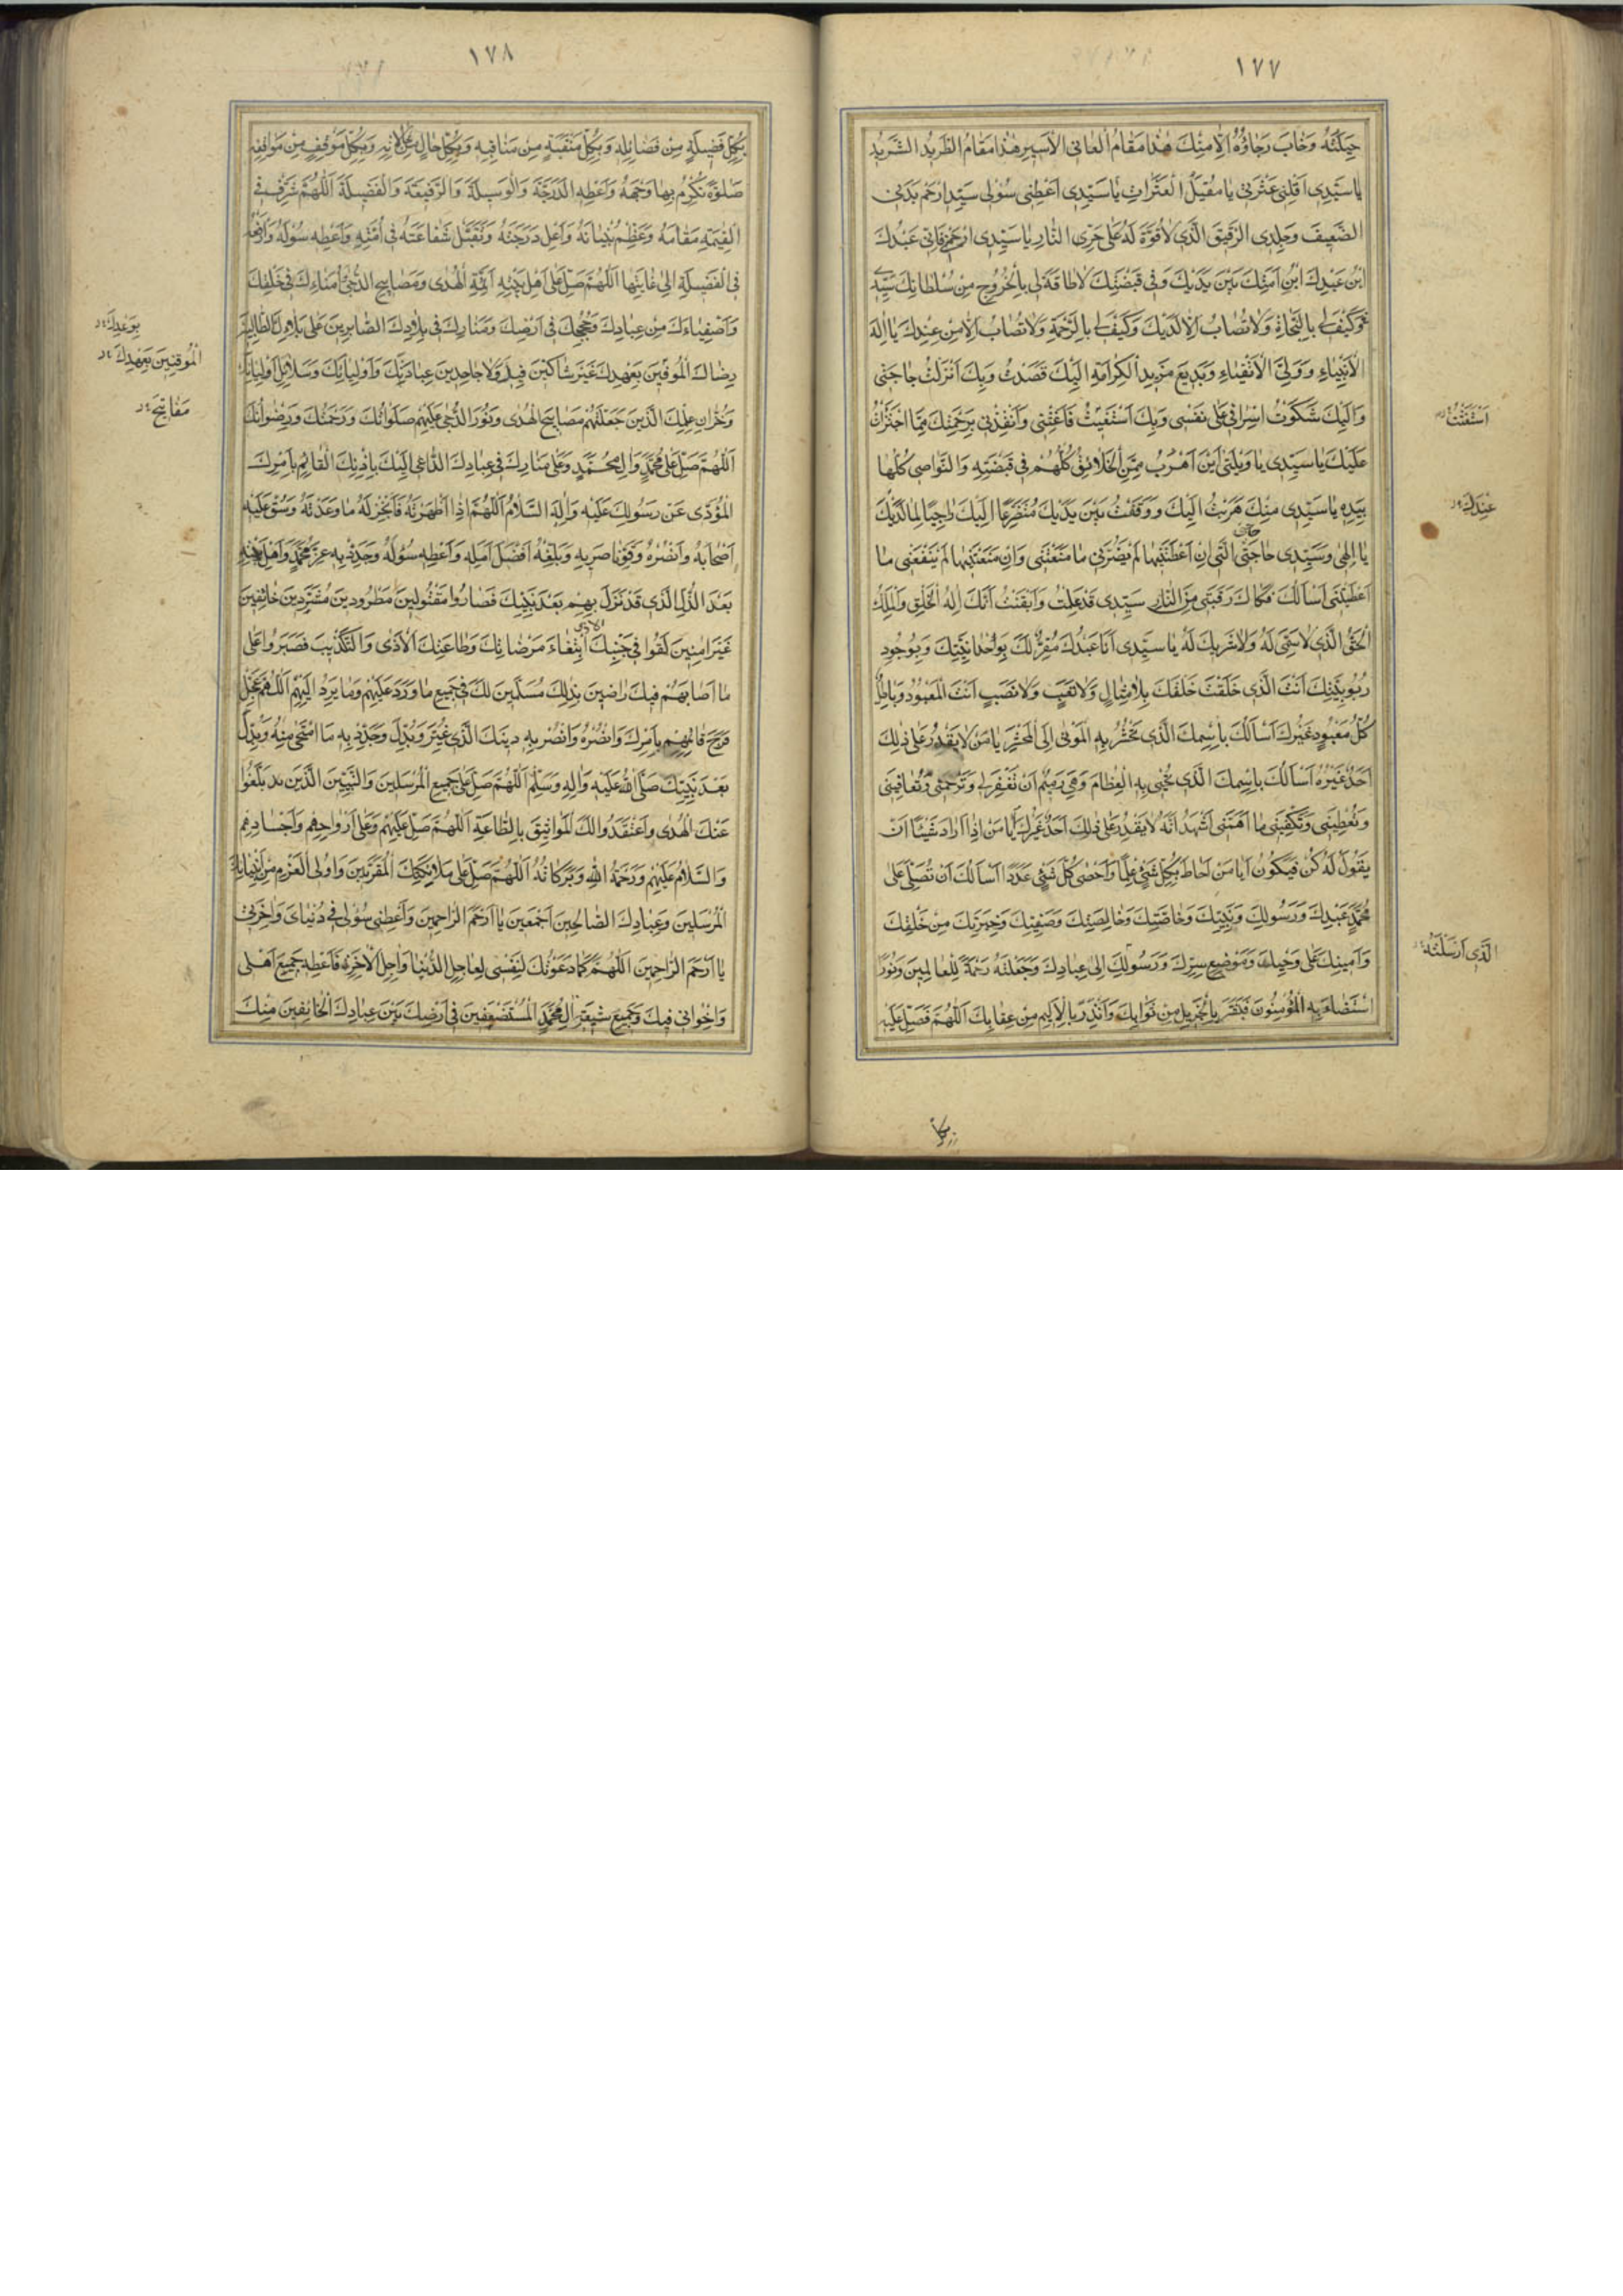 ١٧٧
حِيلَتُهُ وَخَابَ رَجَاؤُهُ اِلَّا مِنْكَ هٰذَا مَقَامُ الْعَانِى الْاَسِيرِ هٰذَا مَقَامُ الطَّرِيدِ الشَّرِيدِ
يَا سَيِّدِى اَقِلْنِى عَثْرَتِى يَا مُقِيلَ الْعَثَرَاتِ يَا سَيِّدِى اَعْطِنِى سُؤْلِى سَيِّدِ ارْحَمْ بَدَنِى
الضَّعِيفَ وَجِلْدِى الرَّقِيقَ الَّذِى لَا قُوَّةَ لَهُ عَلَى حَرِّ النَّارِ يَا سَيِّدِى ارْحَمْنِى فَاِنِّى عَبْدُكَ
ابْنُ عَبْدِكَ ابْنُ اَمَتِكَ بَيْنَ يَدَيْكَ وَفِى قَبْضَتِكَ لَا طَاقَةَ لِى بِالْخُرُوجِ مِنْ سُلْطَانِكَ سَيِّدِى
وَكَيْفَ لِى بِالنَّجَاةِ وَلَا تُصَابُ اِلَّا لَدَيْكَ وَكَيْفَ لِى بِالرَّحْمَةِ وَلَا تُصَابُ اِلَّا مِنْ عِنْدِكَ يَا اِلٰهَ
الْاَنْبِيَاءِ وَوَلِىَّ الْاَتْقِيَاءِ وَبَدِيعَ مَزِيدِ الْكَرَامَةِ اِلَيْكَ قَصَدْتُ وَبِكَ اَنْزَلْتُ حَاجَتِى
وَاِلَيْكَ شَكَوْتُ اِسْرَافِى عَلَى نَفْسِى وَبِكَ اَسْتَغِيثُ فَاَغِثْنِى وَاَنْقِذْنِى بِرَحْمَتِكَ مِمَّا اجْتَرَأْتُ
اسْتَغَثْتُ
عَلَيْكَ يَا سَيِّدِى يَا وَيْلَتِى اَيْنَ اَهْرُبُ مِمَّنِ الْخَلَائِقُ كُلُّهُمْ فِى قَبْضَتِهِ وَالنَّوَاصِى كُلُّهَا
بِيَدِهِ يَا سَيِّدِى مِنْكَ هَرَبْتُ اِلَيْكَ وَوَقَفْتُ بَيْنَ يَدَيْكَ مُتَضَرِّعًا اِلَيْكَ رَاجِيًا لِمَا لَدَيْكَ
عِنْدَكَ
يَا اِلٰهِى وَسَيِّدِى حَاجَتِى الَّتِى اِنْ اَعْطَيْتَنِيهَا لَمْ يَضُرَّنِى مَا مَنَعْتَنِى وَاِنْ مَنَعْتَنِيهَا لَمْ يَنْفَعْنِى مَا
اَعْطَيْتَنِى اَسْاَلُكَ فَكَاكَ رَقَبَتِى مِنَ النَّارِ سَيِّدِى قَدْ عَلِمْتُ وَاَيْقَنْتُ اَنَّكَ اِلٰهُ الْخَلْقِ وَالْمَلِكُ
الْحَقُّ الَّذِى لَا سَمِىَّ لَهُ وَلَا شَرِيكَ لَهُ يَا سَيِّدِى اَنَا عَبْدُكَ مُقِرٌّ لَكَ بِوَحْدَانِيَّتِكَ وَبِوُجُودِ
رُبُوبِيَّتِكَ اَنْتَ الَّذِى خَلَقْتَ خَلْقَكَ بِلَا مِثَالٍ وَلَا تَعَبٍ وَلَا نَصَبٍ اَنْتَ الْمَعْبُودُ وَبَاطِلٌ
كُلُّ مَعْبُودٍ غَيْرُكَ اَسْاَلُكَ بِاسْمِكَ الَّذِى تَحْشُرُ بِهِ الْمَوْتَى اِلَى الْمَحْشَرِ يَا مَنْ لَا يَقْدِرُ عَلَى ذٰلِكَ
اَحَدٌ غَيْرُهُ اَسْاَلُكَ بِاسْمِكَ الَّذِى تُحْيِى بِهِ الْعِظَامَ وَهِىَ رَمِيمٌ اَنْ تَغْفِرَ لِى وَتَرْحَمَنِى وَتُعَافِيَنِى
وَتُعْطِيَنِى وَتَكْفِيَنِى مَا اَهَمَّنِى اَشْهَدُ اَنَّهُ لَا يَقْدِرُ عَلَى ذٰلِكَ اَحَدٌ غَيْرُكَ اَيَا مَنْ اِذَا اَرَادَ شَيْئًا اَنْ
يَقُولَ لَهُ كُنْ فَيَكُونُ اَيَا مَنْ اَحَاطَ بِكُلِّ شَىْءٍ عِلْمًا وَاَحْصَى كُلَّ شَىْءٍ عَدَدًا اَسْاَلُكَ اَنْ تُصَلِّىَ عَلَى
مُحَمَّدٍ عَبْدِكَ وَرَسُولِكَ وَنَبِيِّكَ وَخَاصَّتِكَ وَخَالِصَتِكَ وَصَفِيِّكَ وَخِيَرَتِكَ مِنْ خَلْقِكَ
وَاَمِينِكَ عَلَى وَحْيِكَ وَمَوْضِعِ سِرِّكَ وَرَسُولِكَ اِلَى عِبَادِكَ وَجَعَلْتَهُ رَحْمَةً لِلْعَالَمِينَ وَنُورًا
الَّذِى اَرْسَلْتَهُ
اسْتَضَاءَ بِهِ الْمُؤْمِنُونَ فَبَشَّرَ بِالْجَزِيلِ مِنْ ثَوَابِكَ وَاَنْذَرَ بِالْاَلِيمِ مِنْ عِقَابِكَ اَللّٰهُمَّ فَصَلِّ عَلَيْهِ
بكل
١٧٨
بِكُلِّ فَضِيلَةٍ مِنْ فَضَائِلِهِ وَبِكُلِّ مَنْقَبَةٍ مِنْ مَنَاقِبِهِ وَبِكُلِّ حَالٍ مِنْ حَالَاتِهِ وَبِكُلِّ مَوْقِفٍ مِنْ مَوَاقِفِهِ
صَلٰوةً تُكْرِمُ بِهَا وَجْهَهُ وَاَعْطِهِ الدَّرَجَةَ وَالْوَسِيلَةَ وَالرَّفِيعَةَ وَالْفَضِيلَةَ اَللّٰهُمَّ شَرِّفْ فِى
الْقِيٰمَةِ مَقَامَهُ وَعَظِّمْ بُنْيَانَهُ وَاَعْلِ دَرَجَتَهُ وَتَقَبَّلْ شَفَاعَتَهُ فِى اُمَّتِهِ وَاَعْطِهِ سُؤْلَهُ وَارْفَعْهُ
فِى الْفَضِيلَةِ اِلَى غَايَتِهَا اَللّٰهُمَّ صَلِّ عَلَى اَهْلِ بَيْتِهِ اَئِمَّةِ الْهُدَى وَمَصَابِيحِ الدُّجَى اُمَنَاءِكَ فِى خَلْقِكَ
وَاَصْفِيَاءِكَ مِنْ عِبَادِكَ وَحُجَجِكَ فِى اَرْضِكَ وَمَنَارِكَ فِى بِلَادِكَ الصَّابِرِينَ عَلَى بَلَائِكَ الطَّالِبِينَ
بِوَعْدِكَ
رِضَاكَ الْمُوفِينَ بِعَهْدِكَ غَيْرَ شَاكِّينَ فِيكَ وَلَا جَاحِدِينَ عِبَادَتَكَ وَاَوْلِيَائِكَ وَسَلَائِلِ اَوْلِيَائِكَ
الْمُوقِنِينَ بِعَهْدِكَ
وَخُزَّانِ عِلْمِكَ الَّذِينَ جَعَلْتَهُمْ مَصَابِيحَ الْهُدَى وَنُورَ الدُّجَى عَلَيْهِمْ صَلَوَاتُكَ وَرَحْمَتُكَ وَرِضْوَانُكَ
مَفَاتِيحَ
اَللّٰهُمَّ صَلِّ عَلَى مُحَمَّدٍ وَاٰلِ مُحَمَّدٍ وَعَلَى مَنَارِكَ فِى عِبَادِكَ الدَّاعِى اِلَيْكَ بِاِذْنِكَ الْقَائِمِ بِاَمْرِكَ
الْمُؤَدِّى عَنْ رَسُولِكَ عَلَيْهِ وَاٰلِهِ السَّلَامُ اَللّٰهُمَّ اِذَا اَظْهَرْتَهُ فَاَنْجِزْ لَهُ مَا وَعَدْتَهُ وَسُقْ اِلَيْهِ
اَصْحَابَهُ وَانْصُرْهُ وَقَوِّ نَاصِرِيهِ وَبَلِّغْهُ اَفْضَلَ اَمَلِهِ وَاَعْطِهِ سُؤْلَهُ وَجَدِّدْ بِهِ عِزَّ مُحَمَّدٍ وَاَهْلِ بَيْتِهِ
بَعْدَ الذُّلِّ الَّذِى قَدْ نَزَلَ بِهِمْ بَعْدَ نَبِيِّكَ فَصَارُوا مَقْتُولِينَ مَطْرُودِينَ مُشَرَّدِينَ خَائِفِينَ
غَيْرَ اٰمِنِينَ لَقُوا فِى جَنْبِكَ ابْتِغَاءَ مَرْضَاتِكَ وَطَاعَتِكَ الْاَذَى وَالتَّكْذِيبَ فَصَبَرُوا عَلَى
مَا اَصَابَهُمْ فِيكَ رَاضِينَ بِذٰلِكَ مُسَلِّمِينَ لَكَ فِى جَمِيعِ مَا وَرَدَ عَلَيْهِمْ وَمَا يَرِدُ اِلَيْهِمْ اَللّٰهُمَّ عَجِّلْ
فَرَجَ قَائِمِهِمْ بِاَمْرِكَ وَانْصُرْهُ وَانْصُرْ بِهِ دِينَكَ الَّذِى غُيِّرَ وَبُدِّلَ وَجَدِّدْ بِهِ مَا امْتَحَى مِنْهُ وَبُدِّلَ
بَعْدَ نَبِيِّكَ صَلَّى اللّٰهُ عَلَيْهِ وَاٰلِهِ وَسَلَّمَ اَللّٰهُمَّ صَلِّ عَلَى جَمِيعِ الْمُرْسَلِينَ وَالنَّبِيِّينَ الَّذِينَ بَلَّغُوا
عَنْكَ الْهُدَى وَاعْتَقَدُوا لَكَ الْمَوَاثِيقَ بِالطَّاعَةِ اَللّٰهُمَّ صَلِّ عَلَيْهِمْ وَعَلَى اَرْوَاحِهِمْ وَاَجْسَادِهِمْ
وَالسَّلَامُ عَلَيْهِمْ وَرَحْمَةُ اللّٰهِ وَبَرَكَاتُهُ اَللّٰهُمَّ صَلِّ عَلَى مَلَائِكَتِكَ الْمُقَرَّبِينَ وَاُولِى الْعَزْمِ مِنْ اَنْبِيَائِكَ
الْمُرْسَلِينَ وَعِبَادِكَ الصَّالِحِينَ اَجْمَعِينَ يَا اَرْحَمَ الرَّاحِمِينَ وَاَعْطِنِى سُؤْلِى فِى دُنْيَاىَ وَاٰخِرَتِى
يَا اَرْحَمَ الرَّاحِمِينَ اَللّٰهُمَّ كَمَا دَعَوْتُكَ لِنَفْسِى لِعَاجِلِ الدُّنْيَا وَاٰجِلِ الْاٰخِرَةِ فَاَعْطِهِ جَمِيعَ اَهْلِى
وَاِخْوَانِى فِيكَ وَجَمِيعَ شِيعَةِ اٰلِ مُحَمَّدٍ الْمُسْتَضْعَفِينَ فِى اَرْضِكَ بَيْنَ عِبَادِكَ الْخَائِفِينَ مِنْكَ